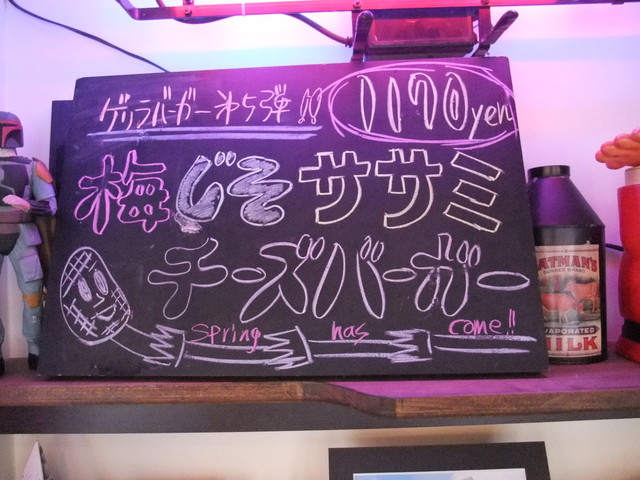 ゲリラバーガー第5弾!! 1170yen
梅じそササミ
チーズバーガー
spring has come!!
ATMAN'S
EVAPORATED
MILK